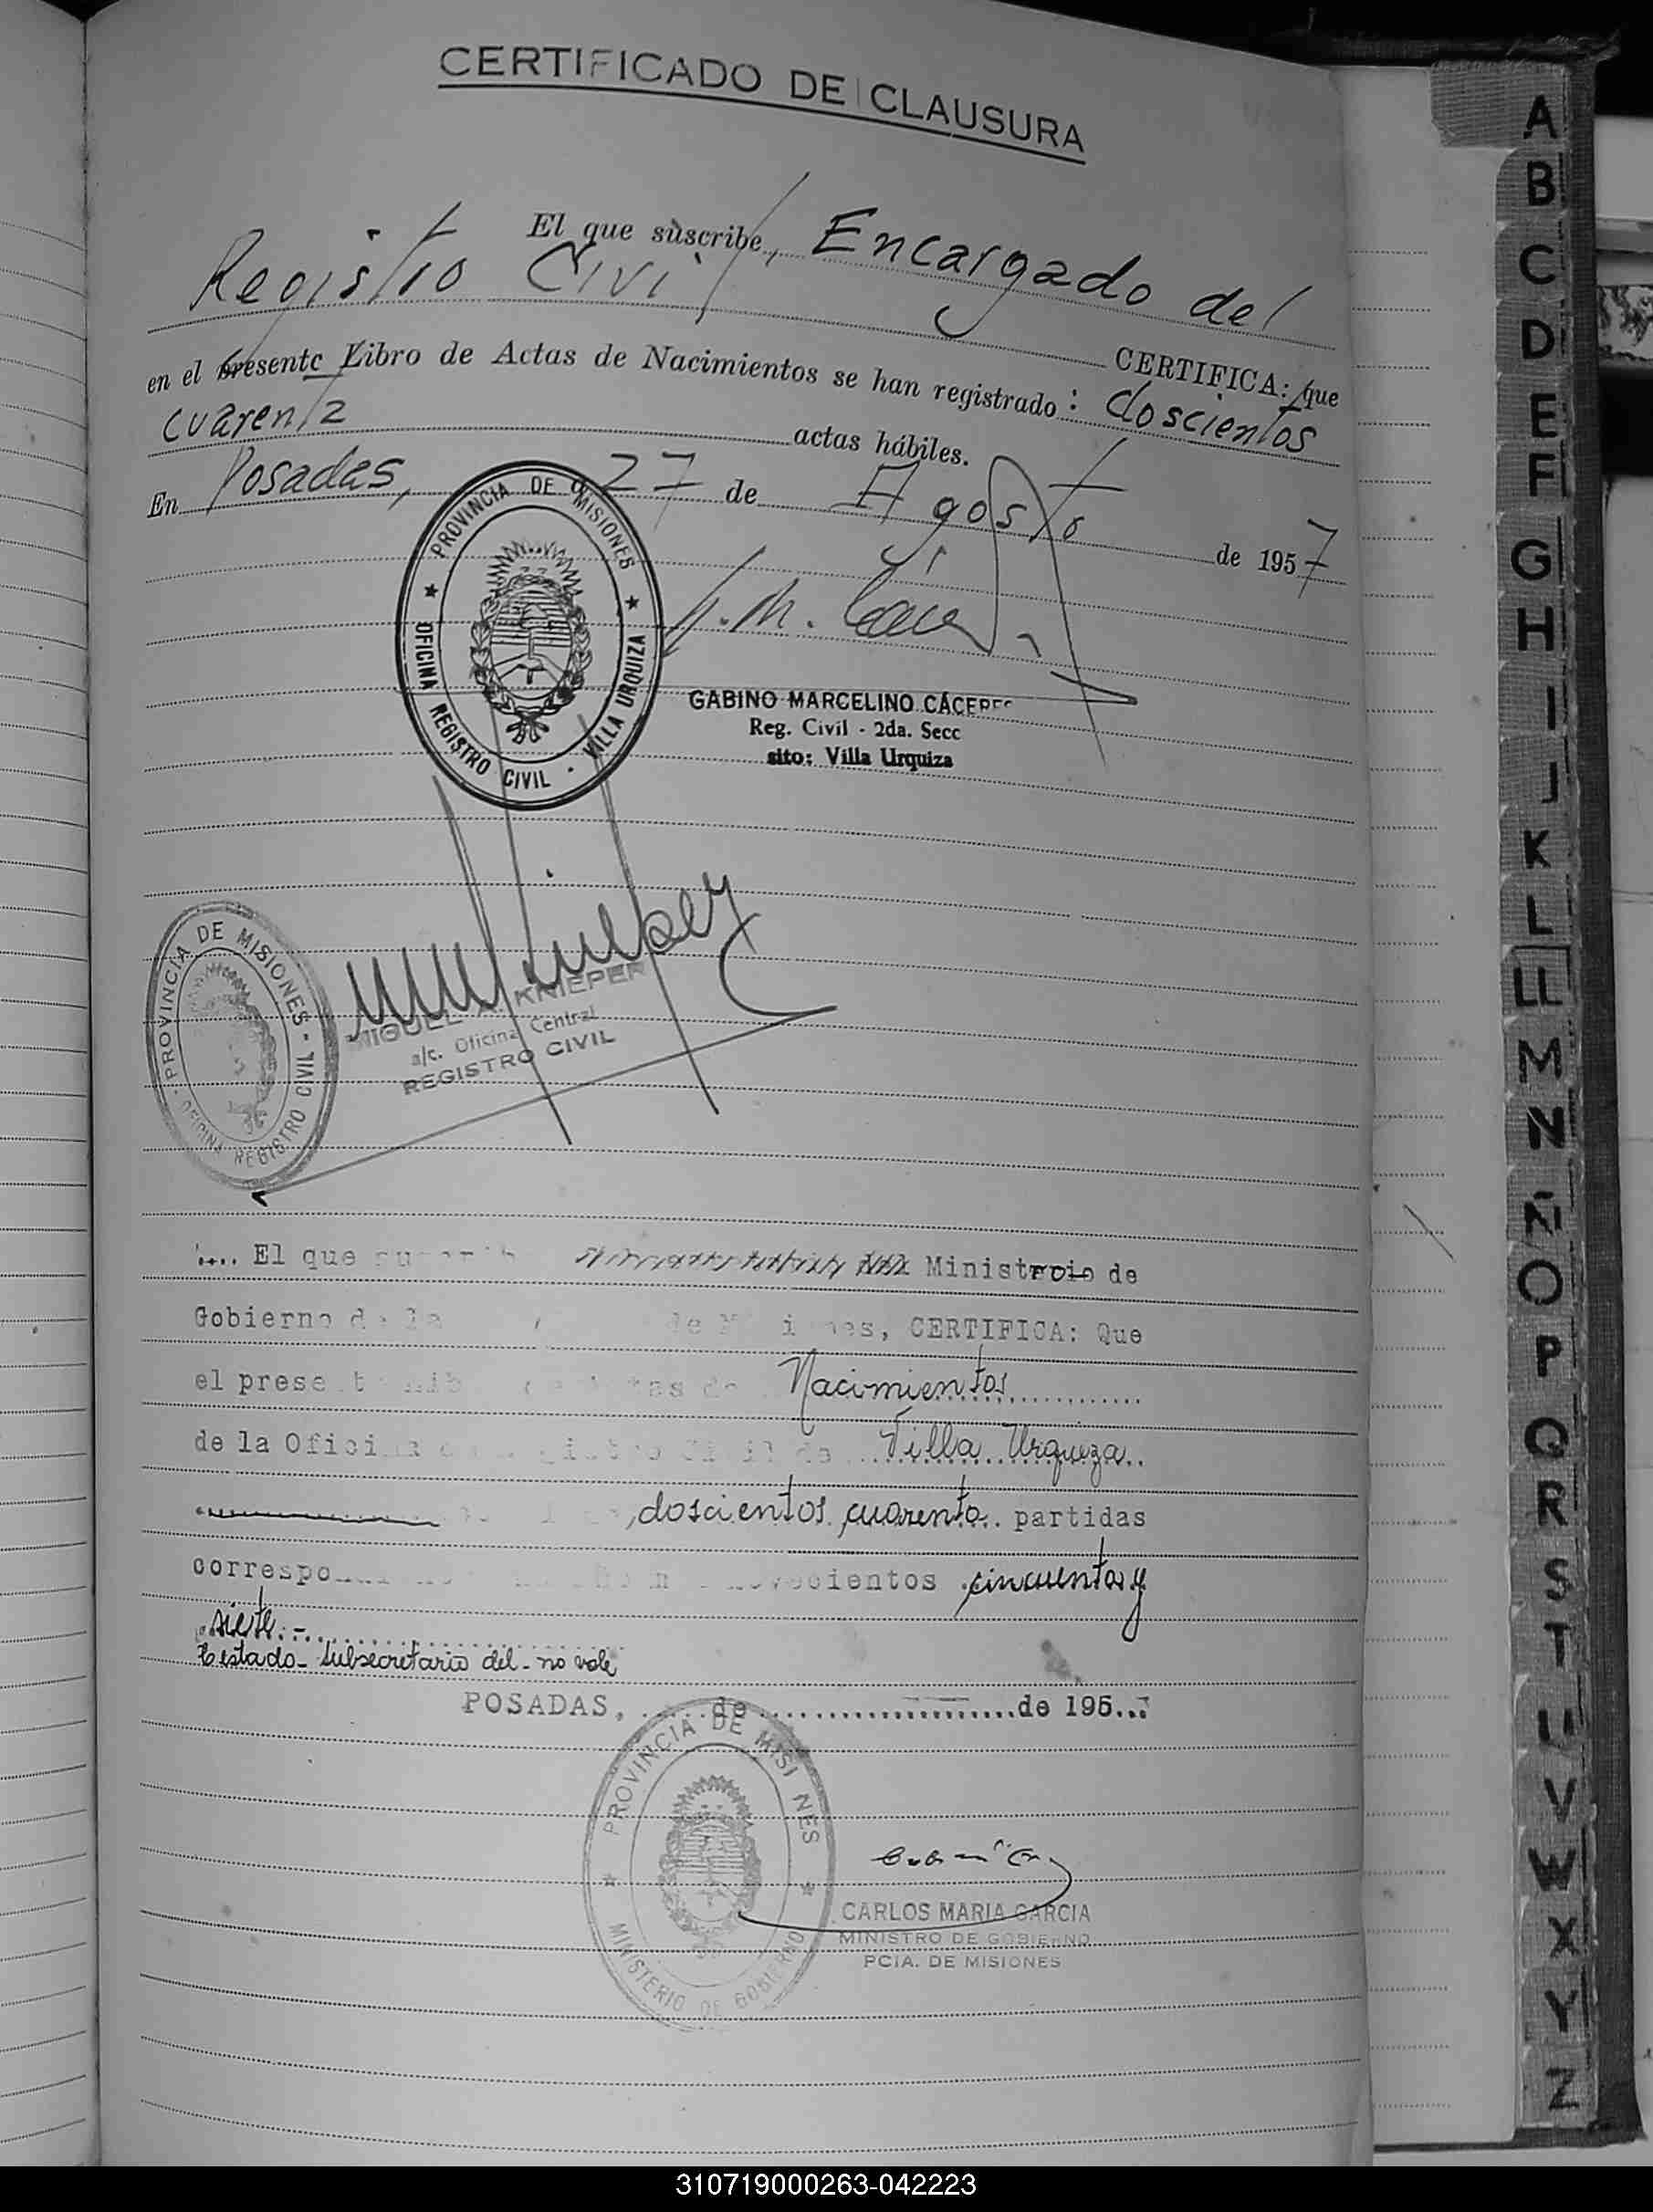 CERTIFICADO DE CLAUSURA
El que suscribe, Encargado del
Registro Civil CERTIFICA: que
en el presente Libro de Actas de Nacimientos se han registrado: doscientos
cuarenta actas hábiles.
En Posadas, 27 de Agosto de 1957
PROVINCIA DE MISIONES
OFICINA REGISTRO CIVIL - VILLA URQUIZA
G. M. Cáceres
GABINO MARCELINO CÁCERES
Reg. Civil - 2da. Secc
sito: Villa Urquiza
PROVINCIA DE MISIONES -
OFICINA REGISTRO CIVIL
MIGUEL KNIEPER
a/c. Oficina Central
REGISTRO CIVIL
.... El que Ministroio de
Gobierno de la CERTIFICA: Que
el presente Nacimientos
de la Oficina Villa Urquiza..
doscientos cuarenta.. partidas
cincuenta y
siete.-
Testado- subsecretario del- no vale
POSADAS, ......de ......................de 195..7
PROVINCIA DE MISI NES
MINISTERIO DE GOBIERNO
CARLOS MARIA GARCIA
MINISTRO DE GOBIERNO
PCIA. DE MISIONES
A
B
C
D
E
F
G
H
I
J
K
L
LL
M
N
Ñ
O
P
Q
R
S
T
U
V
W
X
Y
Z
310719000263-042223